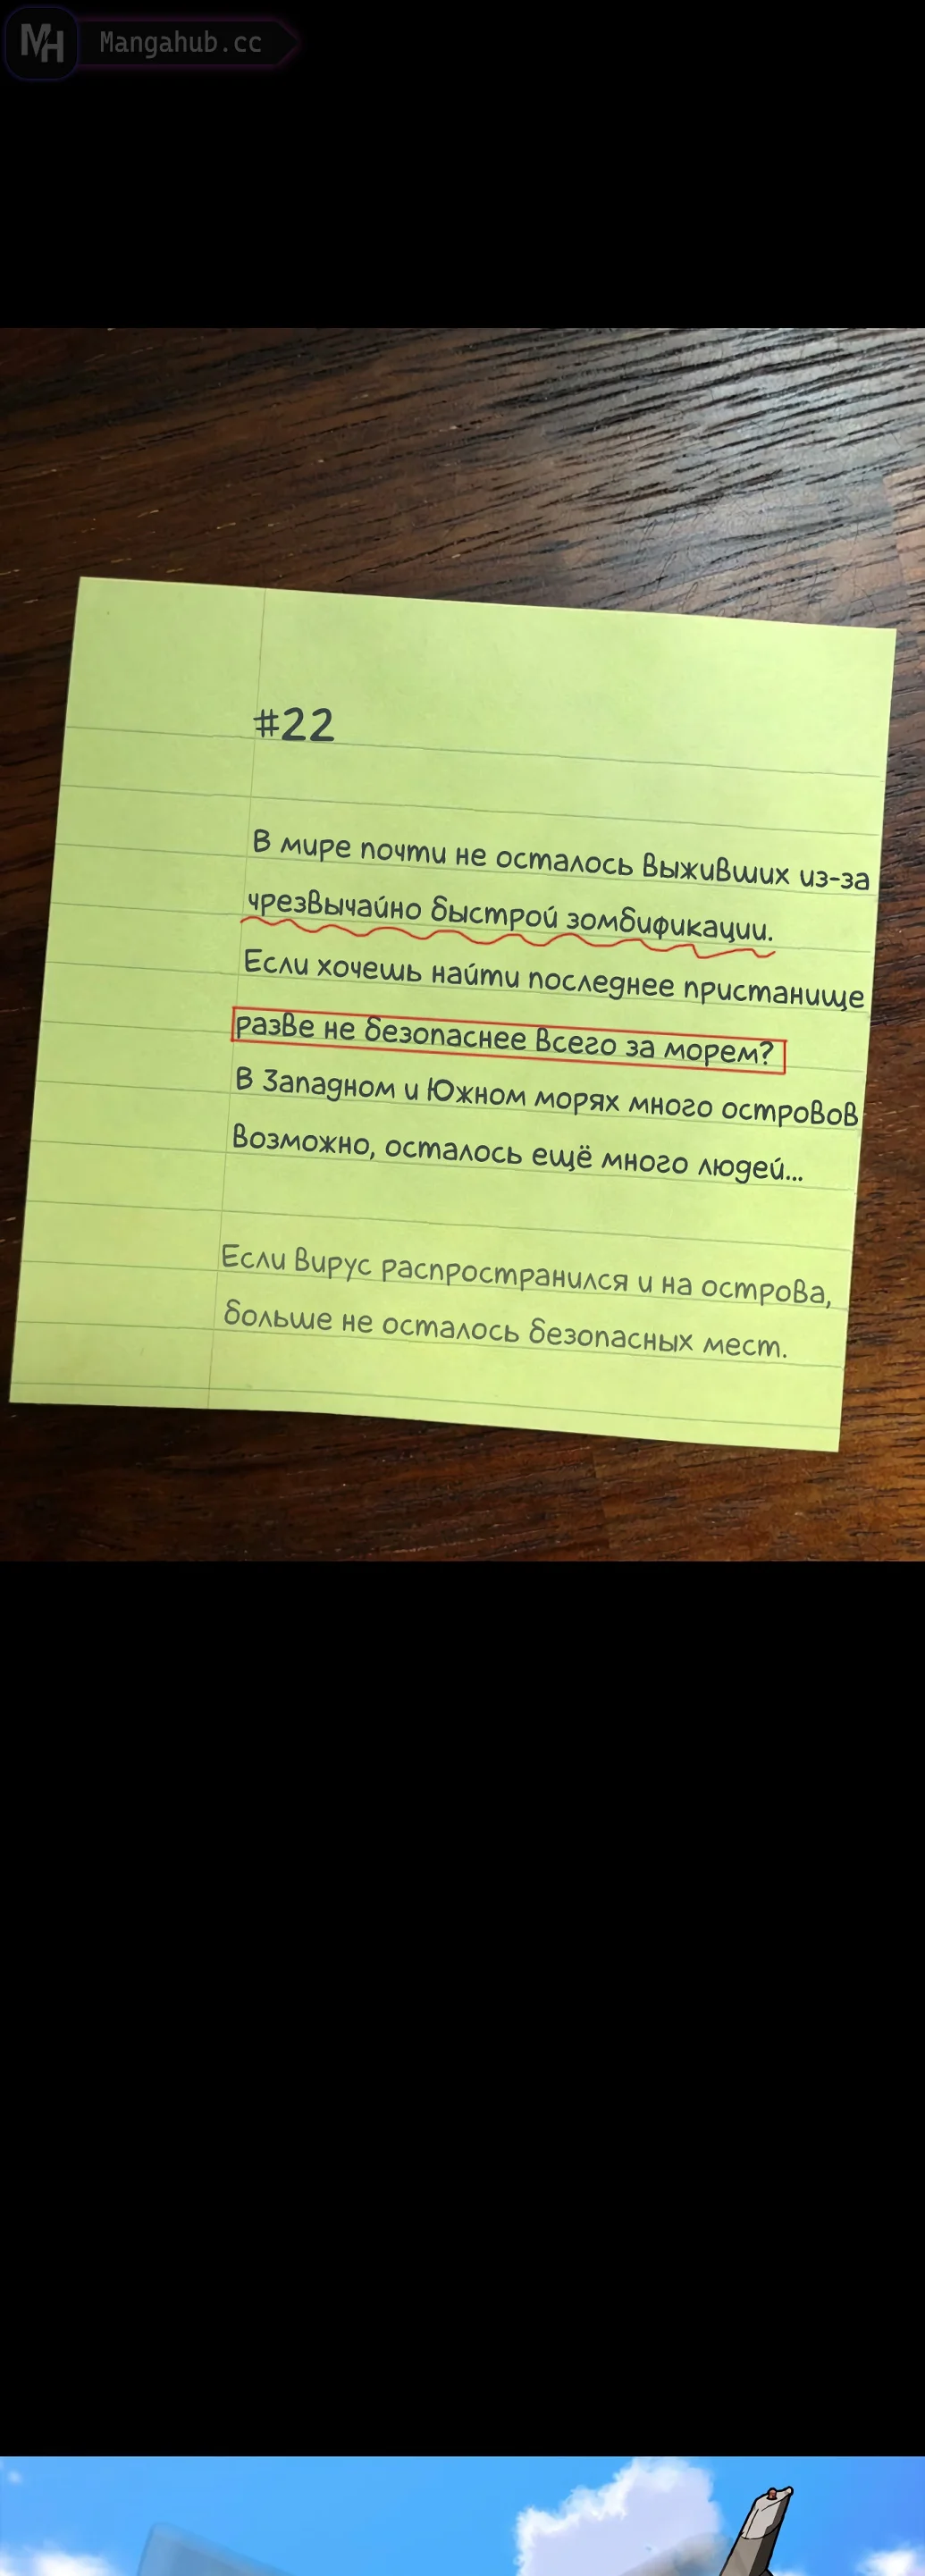 Mangahub.cc
#22
В мире почти не осталось выживших из-за
чрезвычайно быстрой зомбификации.
Если хочешь найти последнее пристанище
разве не безопаснее всего за морем?
В Западном и Южном морях много островов
Возможно, осталось ещё много людей...
Если вирус распространился и на острова,
больше не осталось безопасных мест.